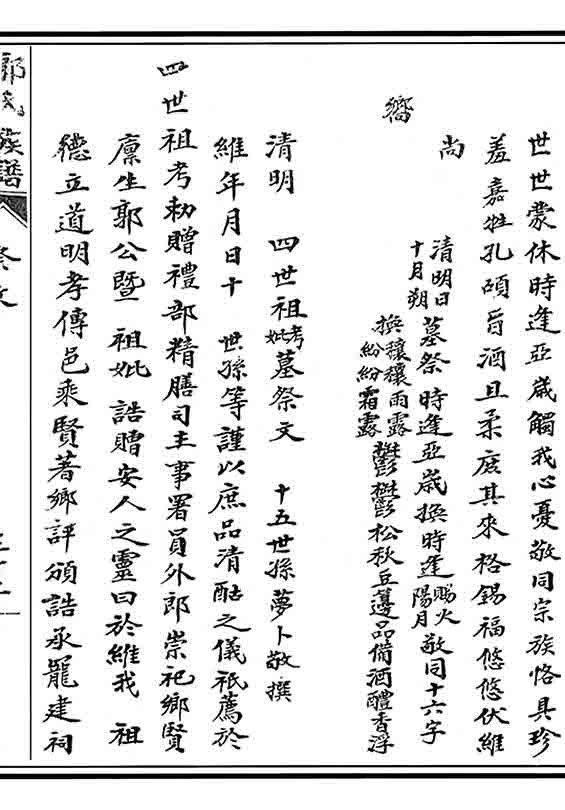 世世蒙休時逢亞歲觸我心憂敬同宗族恪具珍
羞嘉牲孔碩旨酒且柔庶其來格錫福悠悠伏維
尚
饗
清明日
十月朔
墓祭時逢亞歲換時逢
賜火
陽月
敬同十六字
換穰穰雨露
紛紛霜露
鬱鬱松秋豆籩品備酒醴香浮
清明 四世祖
考
妣
墓祭文 十五世孫夢卜敬撰
維年月日十 世孫等謹以庶品清酤之儀祇薦於
四世祖考勅贈禮部精膳司主事署員外郎崇祀鄉賢
廩生郭公暨 祖妣 誥贈安人之靈曰於維我 祖
德立道明孝傳邑乘賢著鄉評頒誥承寵建祠
郭氏族譜
祭文